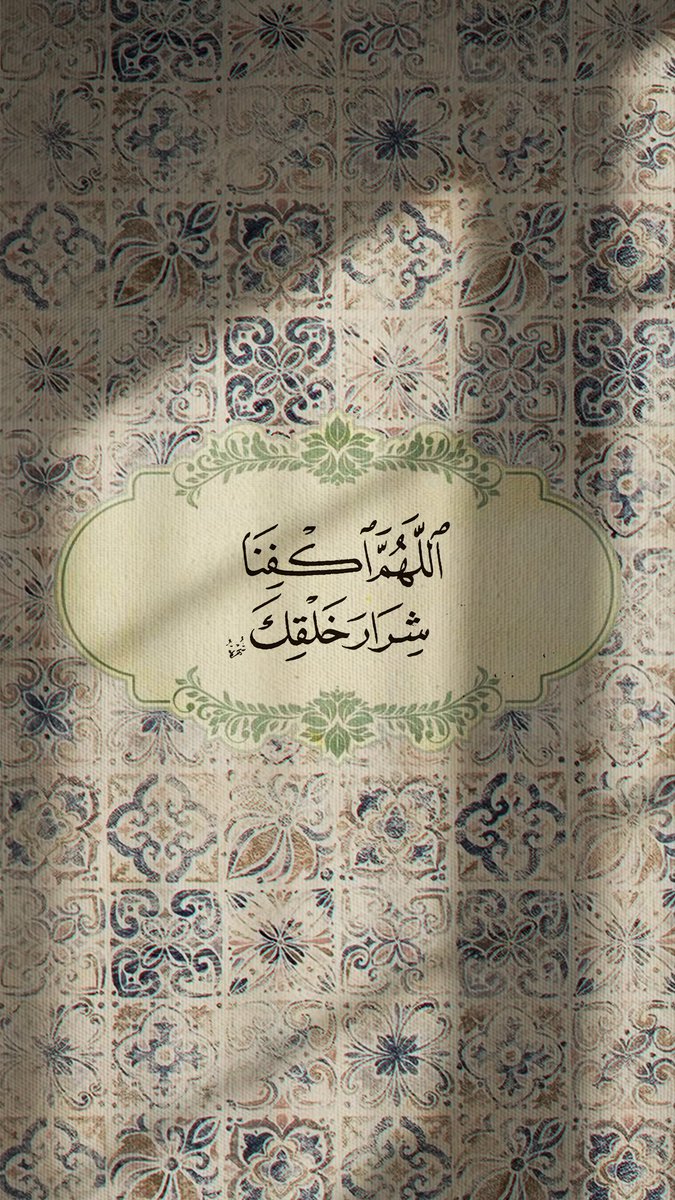 ٱللَّهُمَّ ٱكْفِنَا
شِرَارَ خَلْقِكَ